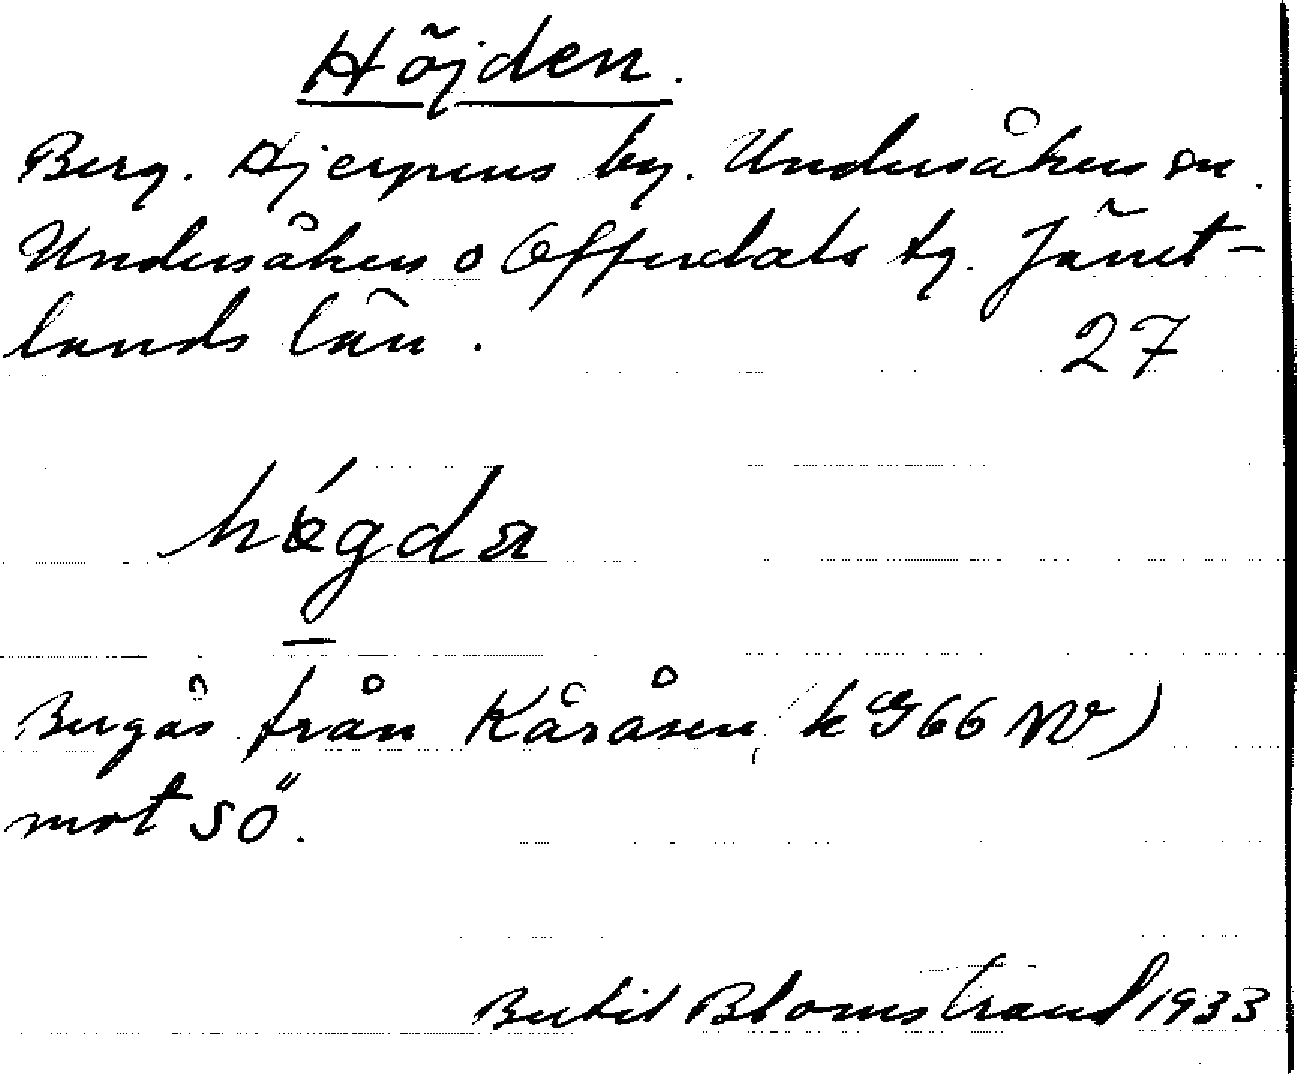 Höjden.
Berg. Hjerpens by. Undersåkers sn.
Undersåkers o Offerdals tg. Jämt-
lands län.
27
högda
Bergås från Kåråsen (k G66 NV)
mot SÖ.
Bertil Blomstrand 1933